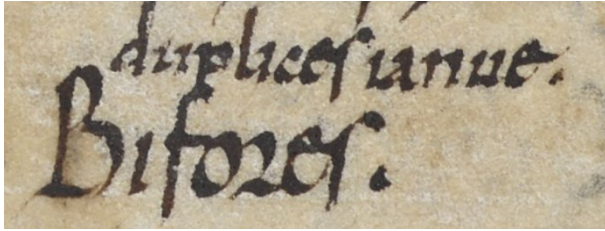 duplices ianue.
Bifores.